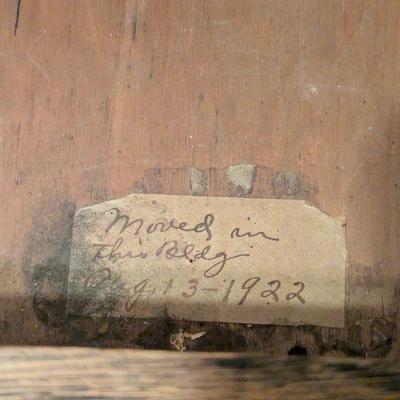 Moved in
this Bldg
Aug. 13-1922